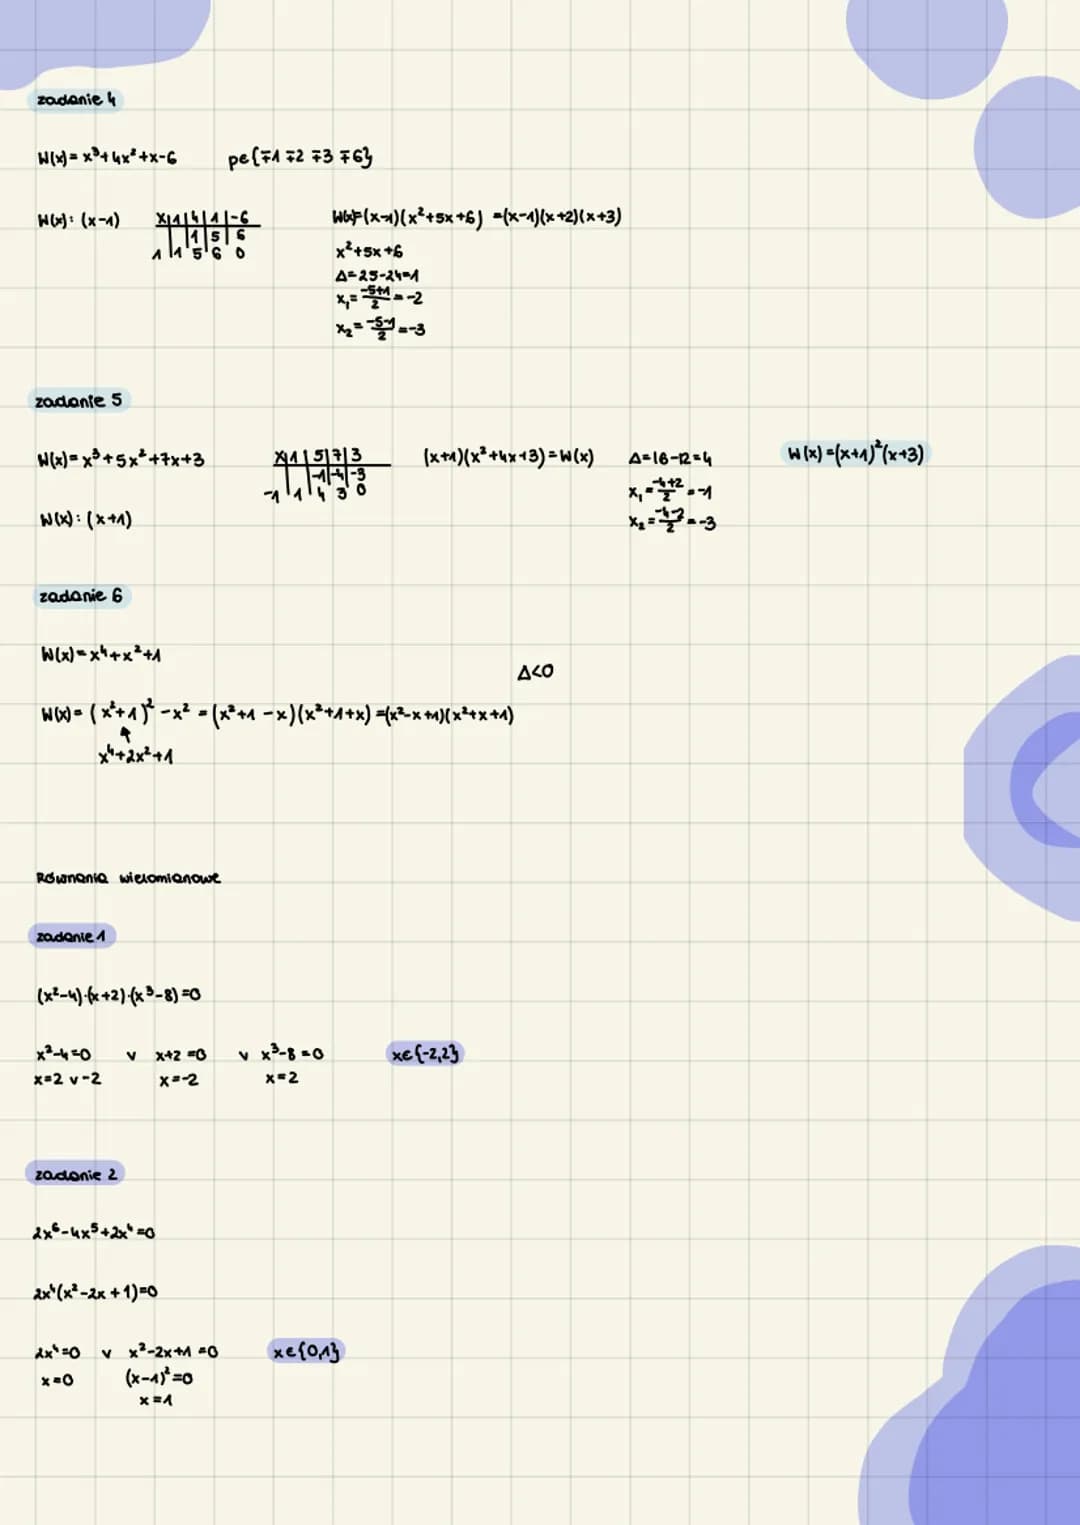 zadanie 4
W(x) = x³+4x²+x-6 p∈{∓1 ∓2 ∓3 ∓6}
W(x): (x-1)
X|1|4|1|-6
1|5|6
1 |1 5 6 0
W(x)=(x-1)(x²+5x+6) =(x-1)(x+2)(x+3)
x²+5x+6
Δ=25-24=1
x₁= (-5+1)/2 = -2
x₂= (-5-1)/2 = -3
zadanie 5
W(x)= x³+5x²+7x+3
X|1|5|7|3
-1|-4|-3
-1 |1 4 3 0
(x+1)(x²+4x+3)=W(x)
Δ=16-12=4
x₁= (-4+2)/2 = -1
x₂= (-4-2)/2 = -3
W(x)=(x+1)²(x+3)
W(x): (x+1)
zadanie 6
W(x)=x⁴+x²+1
Δ<0
W(x)= (x²+1)² -x² = (x²+1 -x)(x²+1+x) =(x²-x+1)(x²+x+1)
x⁴+2x²+1
Równania wielomianowe
zadanie 1
(x²-4)·(x+2)·(x³-8)=0
x²-4=0 v x+2=0 v x³-8=0 x∈{-2,2}
x=2 v -2 x=-2 x=2
zadanie 2
2x⁶-4x⁵+2x⁴=0
2x⁴(x²-2x+1)=0
2x⁴=0 v x²-2x+1=0 x∈{0,1}
x=0 (x-1)²=0
x=1